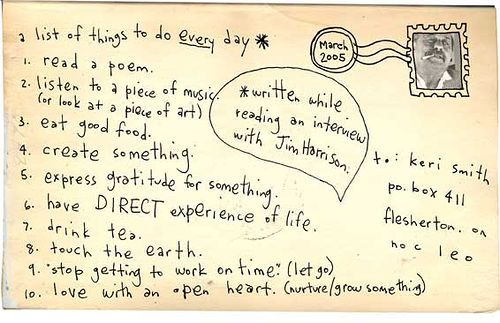 a list of things to do every day *
1. read a poem.
2. listen to a piece of music.
(or look at a piece of art)
3. eat good food.
4. create something.
5. express gratitude for something.
6. have DIRECT experience of life.
7. drink tea.
8. touch the earth.
9. "stop getting to work on time." (let go)
10. love with an open heart. (nurture/grow something)
*written while
reading an interview
with Jim Harrison.
March
2005
to: keri smith
po. box 411
flesherton, on
noc 1eo